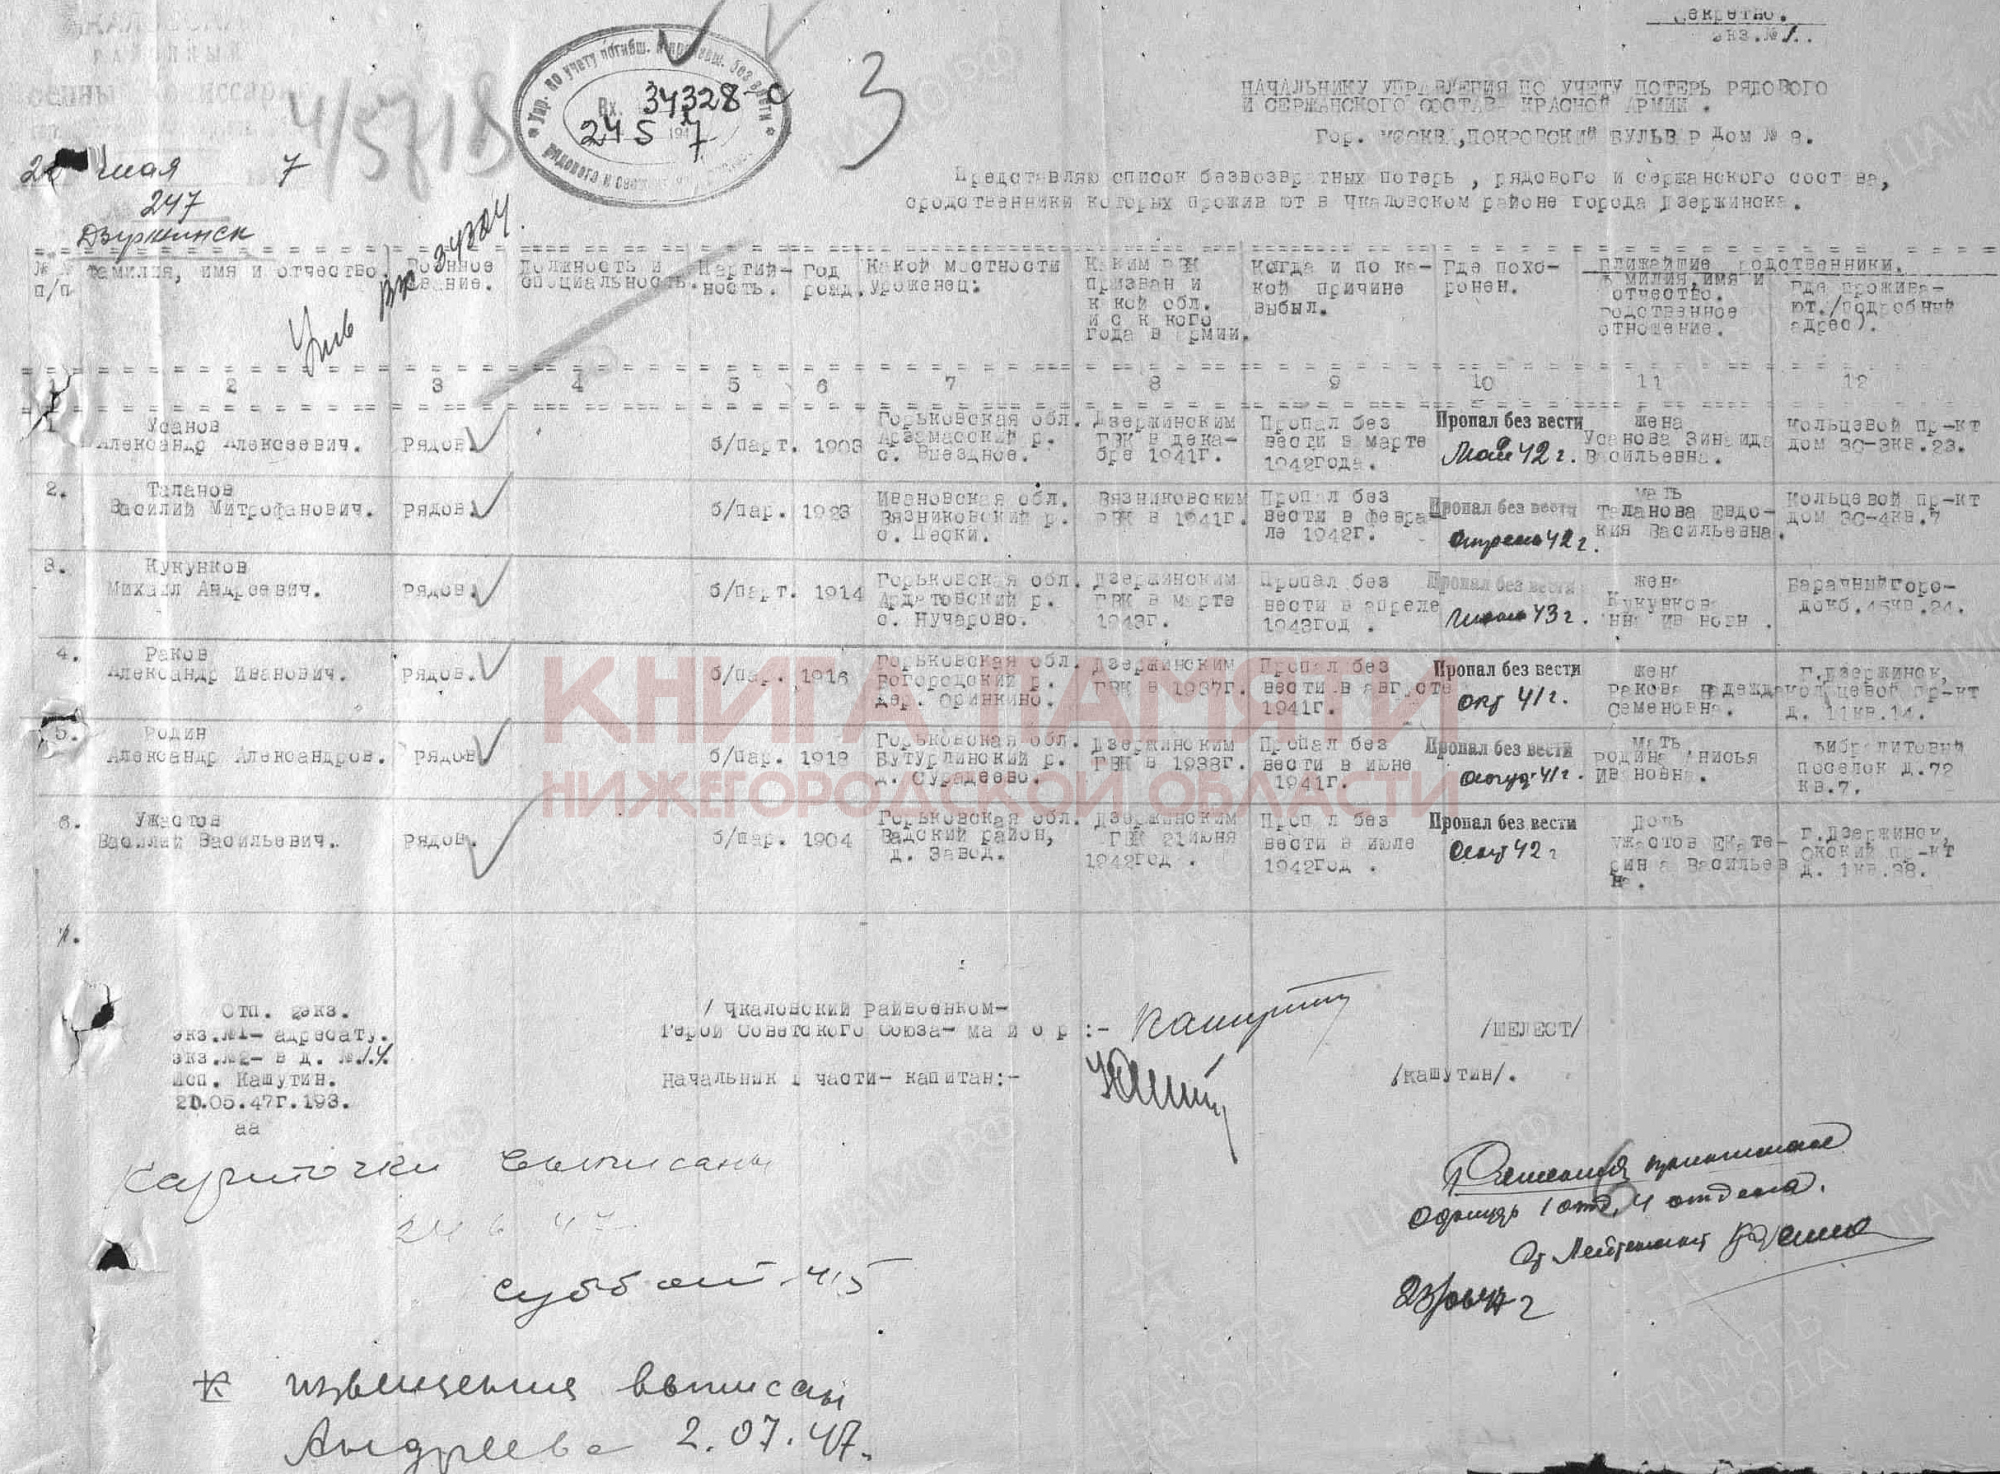 Секретно.
экз.№ 1.
НАЧАЛЬНИКУ УПРАВЛЕНИЯ ПО УЧЕТУ ПОТЕРЬ РЯДОВОГО
И СЕРЖАНСКОГО СОСТАВА КРАСНОЙ АРМИИ.
Гор. МОСКВА, ПОКРОВСКИЙ БУЛЬВАР Дом № 8.
Упр. по учету погибш. и пропавш. без вести
Вх. 34328-с
24 5 1947
рядового и сержан
4/5718
3
мая 7
247
Дзержинск
Представляю список безвозвратных потерь, рядового и сержанского состава,
сродственники которых проживают в Чкаловском районе города Дзержинска.
№ № п/п
Фамилия, имя и отчество.
Военное звание.
Должность и специальность.
Партий-ность.
Год рожд.
Какой местности уроженец:
Каким РВК призван и какой обл. и с какого года в армии.
Когда и по ка-кой причине выбыл.
Где похо-ронен.
Ближайшие родственники.
Фамилия,имя и отчество. родственное отношение.
Где прожива-ют./подробный адрес).
2 3 4 5 6 7 8 9 10 11 12
Усанов Горьковская обл. Дзержинским Пропал без Пропал без вести жена Кольцевой пр-кт
Александр Алексеевич. Рядов. б/парт. 1903 Арзамасский р. ГВК в дека- вести в марте Май 42 г. Усанова Зинаида дом 3С-3кв.23.
с. Выездное. бре 1941г. 1942года. Васильевна.
2. Таланов Ивановская обл. Вязниковским Пропал без Пропал без вести мать Кольцевой пр-кт
Василий Митрофанович. рядов. б/пар. 1923 Вязниковский р. РВК в 1941г. вести в февра- Таланова Евдо- дом 3С-4кв.7
с. Пески. ле 1942г. апрель 42 г. кия Васильевна.
3. Кукунков Горьковская обл. Дзержинским Пропал без Пропал без вести жена Барачный горо-
Михаил Андреевич. рядов. б/парт. 1914 Ардатовский р. ГВК в марте вести в апреле 43 г. Кукункова док б.45кв.24.
с. Нучарово. 1943г. 1943год. Анна Ивановн.
4. Раков Горьковская обл. Дзержинским Пропал без Пропал без вести жена г.Дзержинск,
Александр Иванович. рядов. б/пар. 1916 Богородский р. ГВК в 1937г. вести в августе окт 41 г. Ракова Надежда кольцевой пр-кт
дер. Оринкино. 1941г. Семеновна. д. 11кв.14.
5. Родин Горьковская обл. Дзержинским Пропал без Пропал без вести мать Фибролитовый
Александр Александров. рядов б/пар. 1918 Бутурлинский р. ГВК в 1938г. вести в июне август 41 г. Родина Анисья поселок д.72
д. Сурадеево. 1941г. Ивановна. кв.7.
6. Ужастов Горьковская обл. Дзержинским Пропал без Пропал без вести Дочь г.Дзержинск,
Василий Васильевич. рядов. б/пар. 1904 Вадский район, ГВК 21июня вести в июле 42 г Ужастов Екате- Окский пр-кт
д. Завод. 1942год. 1942год. рин а Васильев на. д. 1кв.38.
КНИГА ПАМЯТИ
НИЖЕГОРОДСКОЙ ОБЛАСТИ
Отп. 2экз.
экз.№1- адресату.
экз.№2- в д. №14.
Исп. Кашутин.
20.05.47г.193.
аа
/ Чкаловский райвоенком-
Герой Советского Союза- м а й о р :- /ШЕЛЕСТ/
Начальник 1 части- капитан:- /кашутин/.
Карточки выписаны
24 6 47
Суббот 4/5
извещения выписаны
Андреева 2.07.47.
офицер 1 отд. 4 отдела.
Ст Лейтенант
23/06 47 г